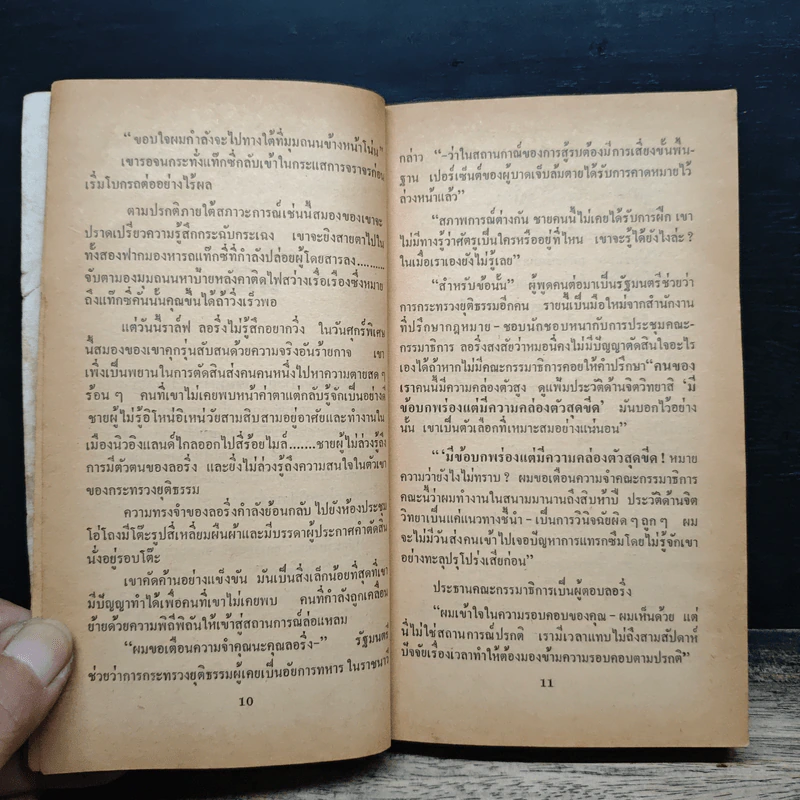 “ขอบใจผมกำลังจะไปทางใต้ที่มุมถนนข้างหน้าโน่น”
เขารอจนกระทั่งแท๊กซี่กลับเข้าในกระแสการจราจรก่อน
เริ่มโบกรถต่ออย่างไร้ผล
ตามปรกติภายใต้สภาวะการณ์เช่นนี้สมองของเขาจะ
ปราดเปรียวความรู้สึกกระฉับกระเฉง เขาจะยิงสายตาไปใน
ทั้งสองฟากมองหารถแท๊กซี่ที่กำลังปล่อยผู้โดยสารลง..........
จับตามองมุมถนนหาป้ายหลังคาติดไฟสว่างเรื่อเรืองซึ่งหมาย
ถึงแท๊กซี่คันนั้นคุณขึ้นได้ถ้าวิ่งเร็วพอ
แต่วันนี้ราล์ฟ ลอริ่งไม่รู้สึกอยากวิ่ง ในวันศุกร์พิเศษ
นี้สมองของเขาคุกรุ่นสับสนด้วยความจริงอันร้ายกาจ เขา
เพิ่งเป็นพยานในการตัดสินส่งคนคนหนึ่งไปหาความตายสด ๆ
ร้อน ๆ คนที่เขาไม่เคยพบหน้าค่าตาแต่กลับรู้จักเป็นอย่างดี
ชายผู้ไม่รู้อิโหน่อิเหน่วัยสามสิบสามอยู่อาศัยและทำงานใน
เมืองนิวอิงแลนด์ไกลออกไปสี่ร้อยไมล์.......ชายผู้ไม่ล่วงรู้ถึง
การมีตัวตนของลอริ่ง และยิ่งไม่ล่วงรู้ถึงความสนใจในตัวเขา
ของกระทรวงยุติธรรม
ความทรงจำของลอริ่งกำลังย้อนกลับ ไปยังห้องประชุม
โอ่โถงมีโต๊ะรูปสี่เหลี่ยมผืนผ้าและมีบรรดาผู้ประกาศคำตัดสิน
นั่งอยู่รอบโต๊ะ
เขาคัดค้านอย่างแข็งขัน มันเป็นสิ่งเล็กน้อยที่สุดที่เขา
มีปัญญาทำได้เพื่อคนที่เขาไม่เคยพบ คนที่กำลังถูกเคลื่อน
ย้ายด้วยความพิถีพิถันให้เข้าสู่สถานการณ์ล่อแหลม
“ผมขอเตือนความจำคุณนะคุณลอริ่ง–” รัฐมนตรี
ช่วยว่าการกระทรวงยุติธรรมผู้เคยเป็นอัยการทหาร ในราชนาวี
10
กล่าว “-ว่าในสถานกาณ์ของการสู้รบต้องมีการเสี่ยงขั้นพื้น-
ฐาน เปอร์เซ็นต์ของผู้บาดเจ็บล้มตายได้รับการคาดหมายไว้
ล่วงหน้าแล้ว”
“สภาพการณ์ต่างกัน ชายคนนี้ไม่เคยได้รับการฝึก เขา
ไม่มีทางรู้ว่าศัตรูเป็นใครหรืออยู่ที่ไหน เขาจะรู้ได้ยังไงล่ะ ?
ในเมื่อเราเองยังไม่รู้เลย”
“สำหรับข้อนั้น” ผู้พูดคนต่อมาเป็นรัฐมนตรีช่วยว่า
การกระทรวงยุติธรรมอีกคน รายนี้เป็นมือใหม่จากสำนักงาน
ที่ปรึกษากฎหมาย – ชอบนักชอบหนากับการประชุมคณะ-
กรรมาธิการ ลอริ่งสงสัยว่าหมอนี่คงไม่มีปัญญาตัดสินใจอะไร
เองได้ถ้าหากไม่มีคณะกรรมาธิการคอยให้คำปรึกษา “คนของ
เราคนนี้มีความคล่องตัวสูง ดูแฟ้มประวัติด้านจิตวิทยาสิ ‘มี
ข้อบกพร่องแต่มีความคล่องตัวสุดขีด’ มันบอกไว้อย่าง
นั้น เขาเป็นตัวเลือกที่เหมาะสมอย่างแน่นอน”
“‘มีข้อบกพร่องแต่มีความคล่องตัวสุดขีด ! หมาย
ความว่ายังไงไม่ทราบ ? ผมขอเตือนความจำคณะกรรมาธิการ
คณะนี้ว่าผมทำงานในสนามมานานถึงสิบห้าปี ประวัติด้านจิต
วิทยาเป็นแค่แนวทางชี้นำ – เป็นการวินิจฉัยผิด ๆ ถูก ๆ ผม
จะไม่มีวันส่งคนเข้าไปเจอปัญหาการแทรกซึมโดยไม่รู้จักเขา
อย่างทะลุปรุโปร่งเสียก่อน”
ประธานคณะกรรมาธิการเป็นผู้ตอบลอริ่ง
“ผมเข้าใจในความรอบคอบของคุณ – ผมเห็นด้วย แต่
นี่ไม่ใช่สถานการณ์ปรกติ เรามีเวลาแทบไม่ถึงสามสัปดาห์
ปัจจัยเรื่องเวลาทำให้ต้องมองข้ามความรอบคอบตามปรกติ”
11